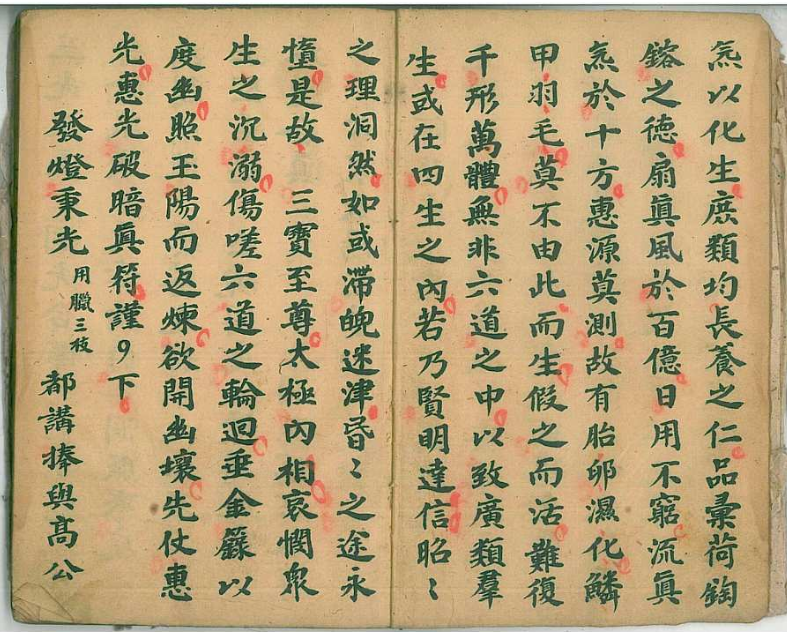 炁以化生庶類均長養之仁品彙荷鈞
鎔之德扇眞風於百億日用不窮流眞
炁於十方惠源莫測故有胎卵濕化鱗
甲羽毛莫不由此而生假之而活難復
千形萬體無非六道之中以致廣類羣
生或在四生之內若乃賢明達信昭〻
之理洞然如或滯魄迷津昏〻之途永
憧是故 三寶至尊太極內相哀憫衆
生之沉溺傷嗟六道之輪迴垂金籙以
度幽照王陽而返煉欲開幽壤先仗惠
光惠光破暗眞符謹9下
發燈秉光 用臘三枝 都講捧與高公